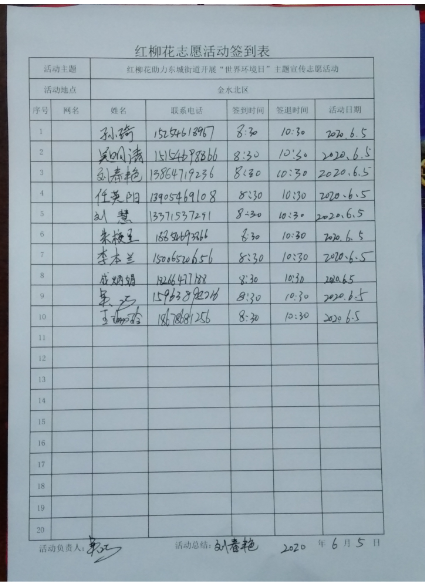 红柳花志愿活动签到表
活动主题 红柳花助力东城街道开展“世界环境日”主题宣传志愿活动
活动地点 金水北区
序号 网名 姓名 联系电话 签到时间 签退时间 活动日期
1 孙琦 8:30 10:30 2020.6.5
2 8:30 10:30 2020.6.5
3 刘春艳 13864719236 8:30 10:30 2020.6.5
4 任英阳 13905469108 8:30 10:30 2020.6.5
5 刘慧 13371537291 8:30 10:30 2020.6.5
6 8:30 10:30 2020.6.5
7 李本兰 15006520656 8:30 10:30 2020.6.5
8 8:30 10:30 2020.6.5
9 8:30 10:30 2020.6.5
10 18678681256 8:30 10:30 2020.6.5
11
12
13
14
15
16
17
18
19
20
活动负责人: 活动总结: 刘春艳 2020 年 6 月 5 日